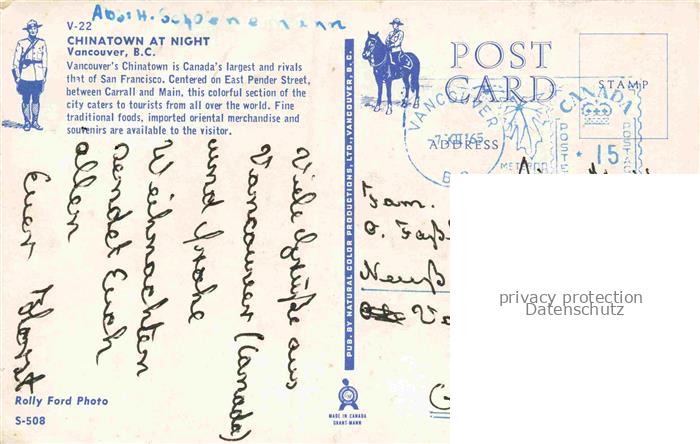 V-22
CHINATOWN AT NIGHT
Vancouver, B.C.
Vancouver's Chinatown is Canada's largest and rivals
that of San Francisco. Centered on East Pender Street,
between Carrall and Main, this colorful section of the
city caters to tourists from all over the world. Fine
traditional foods, imported oriental merchandise and
souvenirs are available to the visitor.
Viele Grüße aus
Vancouver (Canada)
und Frohe
Weihnachten
sendet Euch
allen
Euer Horst
Rolly Ford Photo
S-508
PUB. BY NATURAL COLOR PRODUCTIONS, LTD., VANCOUVER, B.C.
MADE IN CANADA
GRANT-MANN
POST
CARD
STAMP
ADDRESS
VANCOUVER
B.C.
CANADA
15
Fam.
Neuß
privacy protection
Datenschutz